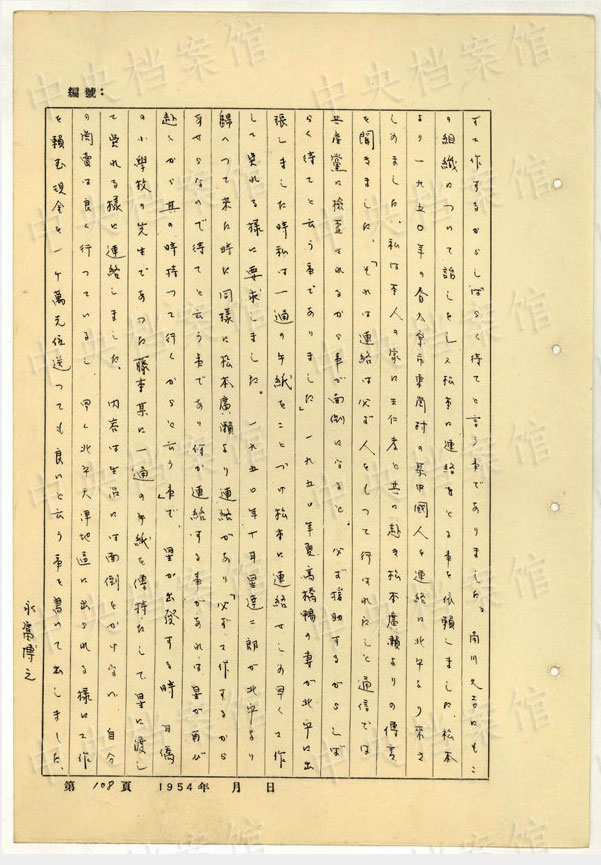 編號：
ずて作するからしばらく待てと言う事でありました。南川にもこ
の組織について話しをしえ松本に連絡をとる事を依頼しました、松本
より一九五〇年の春太原市東岡村の某中國人を連絡に北平より来さ
しめました、私は本人の家に王仁孝と共に赴き松本廣瀬よりの傳言
を聞きました、「それは連絡は必ず人をもって行はれたしと通信では
共産黨に檢査されるから事が面倒になると、必ず援助するからしば
らく待てと云う事でありました」一九五〇年夏高橋の妻が北平に出
張しました時私は一通の手紙をことづけ松本に連絡せしめ早くて作
して呉れる様に要求しました。一九五〇年十月星達二郎が北平より
歸へって来た時に同様に松本廣瀬より連絡があり「必ずて作するから
あせらないで待てと云う事であり何か連絡する事があれば星が再び
赴くから其の時持って行くからと云う」事で、星が出發する時 日僑
の小學校の先生であった藤事某に一通の手紙を傳持たして星に渡し
て呉れる様に連絡しました。内容は生活には面倒をかけない、自分
の商賣は良く行っているし、早く北平天津地區に出られる様にて作
を頼む現金を一ケ萬元位送っても良いと云う事を書いて出しました、
永富博之
第 108 頁 1954年 月 日
中央档案馆